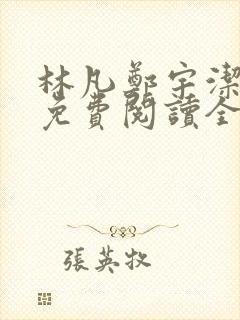 林凡鄭宇潔
免費閱讀全
張英牧